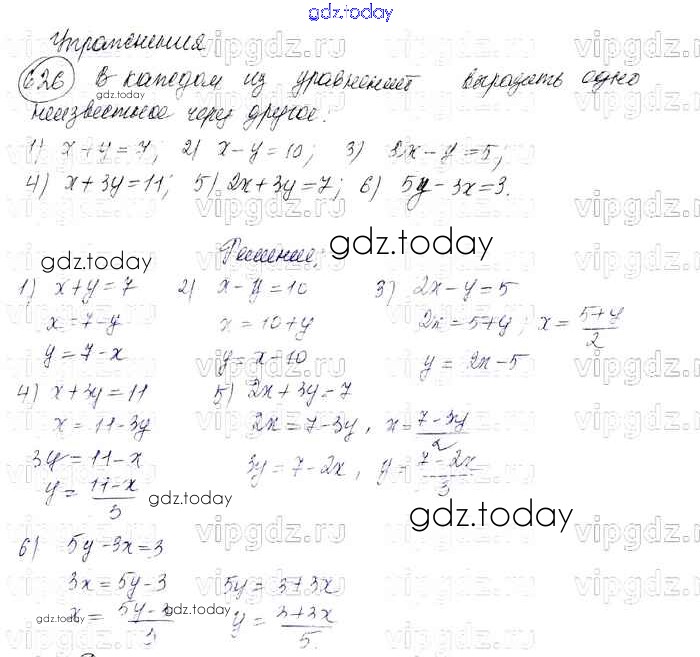 gdz.today
Упражнения
626 В каждом из уравнений выразить одно
gdz.today
неизвестное через другое.
1) x+y=7, 2) x-y=10; 3) 2x-y=5;
4) x+3y=11; 5) 2x+3y=7; 6) 5y-3x=3.
Решение.
gdz.today
gdz.today
1) x+y=7 2) x-y=10 3) 2x-y=5
x=7-y x=10+y 2x=5+y; x=(5+y)/2
y=7-x y=x-10 y=2x-5
4) x+3y=11 5) 2x+3y=7
x=11-3y 2x=7-3y, x=(7-3y)/2
3y=11-x 3y=7-2x, y=(7-2x)/3
y=(11-x)/3
gdz.today
gdz.today
6) 5y-3x=3
3x=5y-3 5y=3+3x
x=(5y-3)/3 y=(3+3x)/5
gdz.today
gdz.today
vipgdz.ru